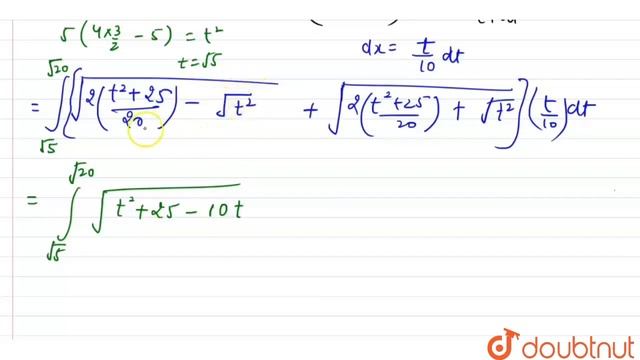 5(4×3/2 − 5) = t²
t = √5
dx = t/10 dt
= ∫_{√5}^{√20} [√(2((t²+25)/20) − √t²) + √(2((t²+25)/20) + √t²)] (t/10) dt
= ∫_{√5}^{√20} √(t²+25−10t)
doubtnut